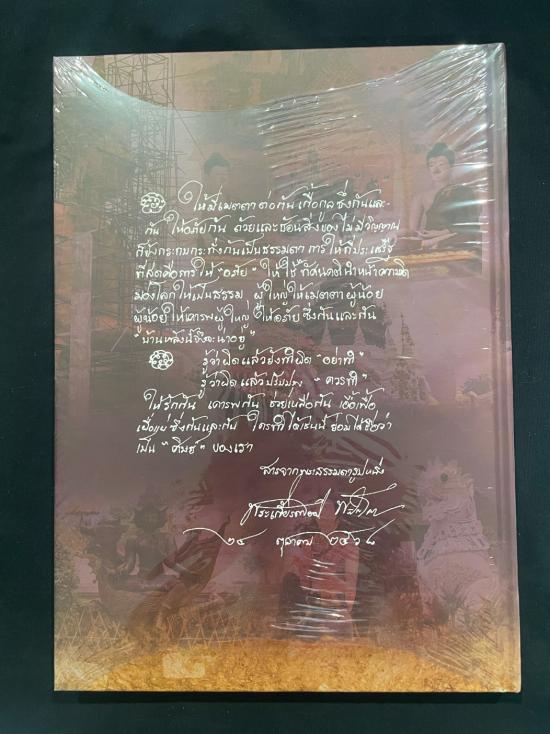 ให้มีเมตตาต่อกัน เกื้อกูลซึ่งกันและ
กัน ให้อภัยกัน ถ้วยและช้อนสิ่งของไม่มีวิญญาณ
ก็ยังกระทบกระทั่งกันเป็นธรรมดา การให้ที่ประเสริฐ
ที่สุดคือการให้ "อภัย" ให้ใช้
มองโลกให้เป็นธรรม ผู้ใหญ่ให้เมตตาผู้น้อย
ผู้น้อยให้เคารพผู้ใหญ่ ให้อภัยซึ่งกันและกัน
"บ้านหลังนี้จึงจะน่าอยู่"
รู้ว่าผิดแล้วยังทำผิด "อย่าทำ"
รู้ว่าผิดแล้วปรับปรุง "ควรทำ"
ให้รักกัน เคารพกัน ช่วยเหลือกัน เอื้อเฟื้อ
เผื่อแผ่ซึ่งกันและกัน ใครทำได้เช่นนี้ ย่อมได้ชื่อว่า
เป็น "ศิษย์" ของเรา
สารจากพระธรรมดารูปหนึ่ง
๒๔ ตุลาคม ๒๕๖๘